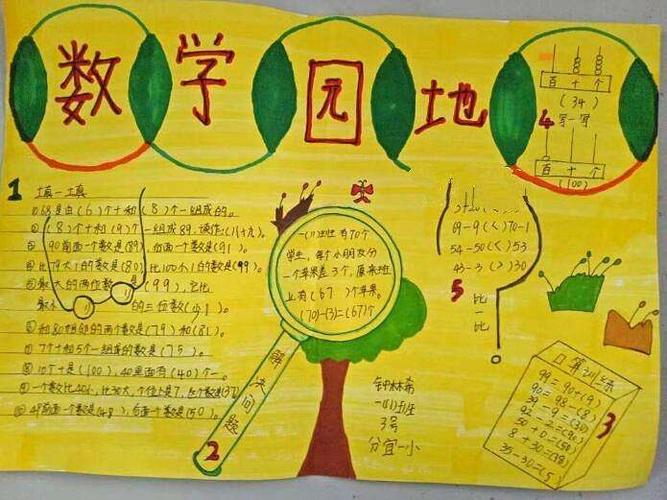 数学园地
百十个
(34)
4 写一写
百十个
(100)
1 填一填
①68是由(6)个十和(8)个一组成的。
②(8)个十和(9)个一组成89,读作:(八十九)。
③90前面一个数是(89),后面一个数是(91)。
④比79大1的数是(80),比100小1的数是(99)。
⑤最大的两位数是(99),它比
最小的三位数(少1)。
⑥和80相邻的两个数是(79)和(81)。
⑦7个十和5个一组成的数是(75)。
⑧10个十是(100),40里面有(40)个一。
⑨一个数比40小,比30大,个位上是7,这个数是(37)
⑩49前面一个数是(48),后面一个数是(50)。
一(1)班有70个
学生,每个小朋友分
一个苹果差3个,原来班
上有(67)个苹果。
(70)-(3)=(67)个
解决问题
2
69-9(<)70-1
54-50(<)53
43-3(>)30
5 比一比
一(4)班
3号
分宜一小
口算训练
99=90+(9)
90=98-(8)
39-9=(30)
92-2=(90)
50+0=(50)
8+30=(38)
35-30=(5)
3